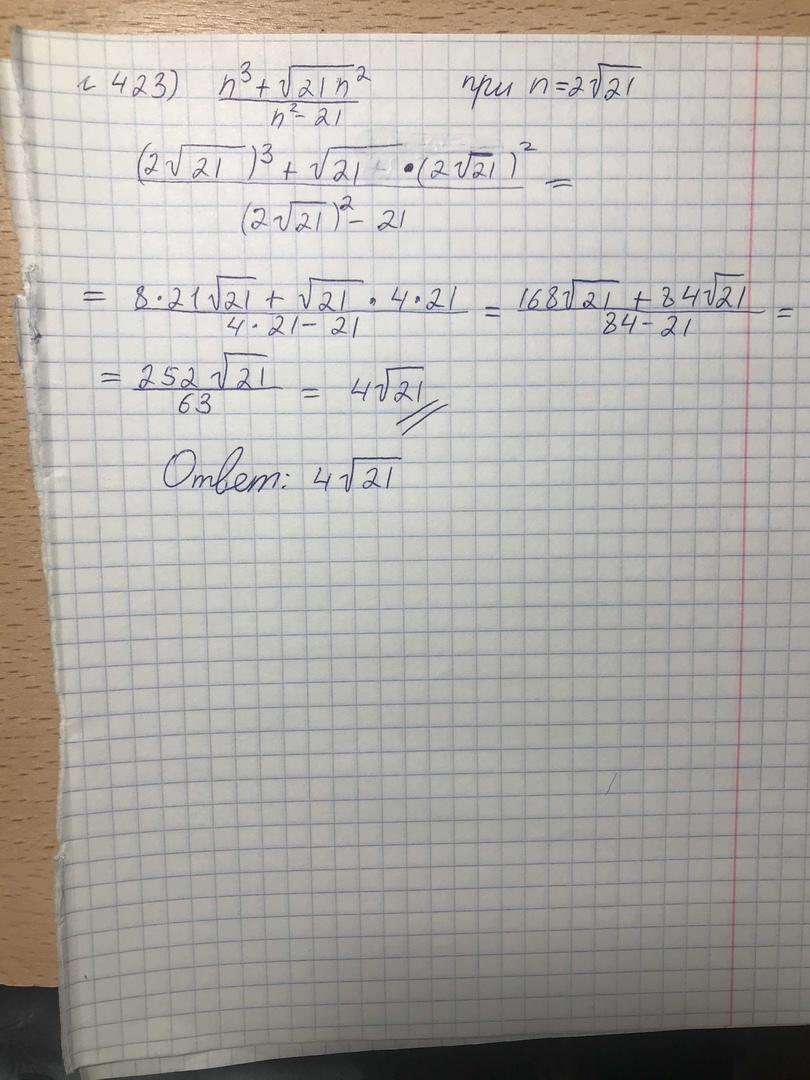 г 423) (n³ + √21 n²)/(n² - 21) при n = 2√21
((2√21)³ + √21 · (2√21)²)/((2√21)² - 21) =
= (8 · 21√21 + √21 · 4 · 21)/(4 · 21 - 21) = (168√21 + 84√21)/(84 - 21) =
= 252√21/63 = 4√21
Ответ: 4√21